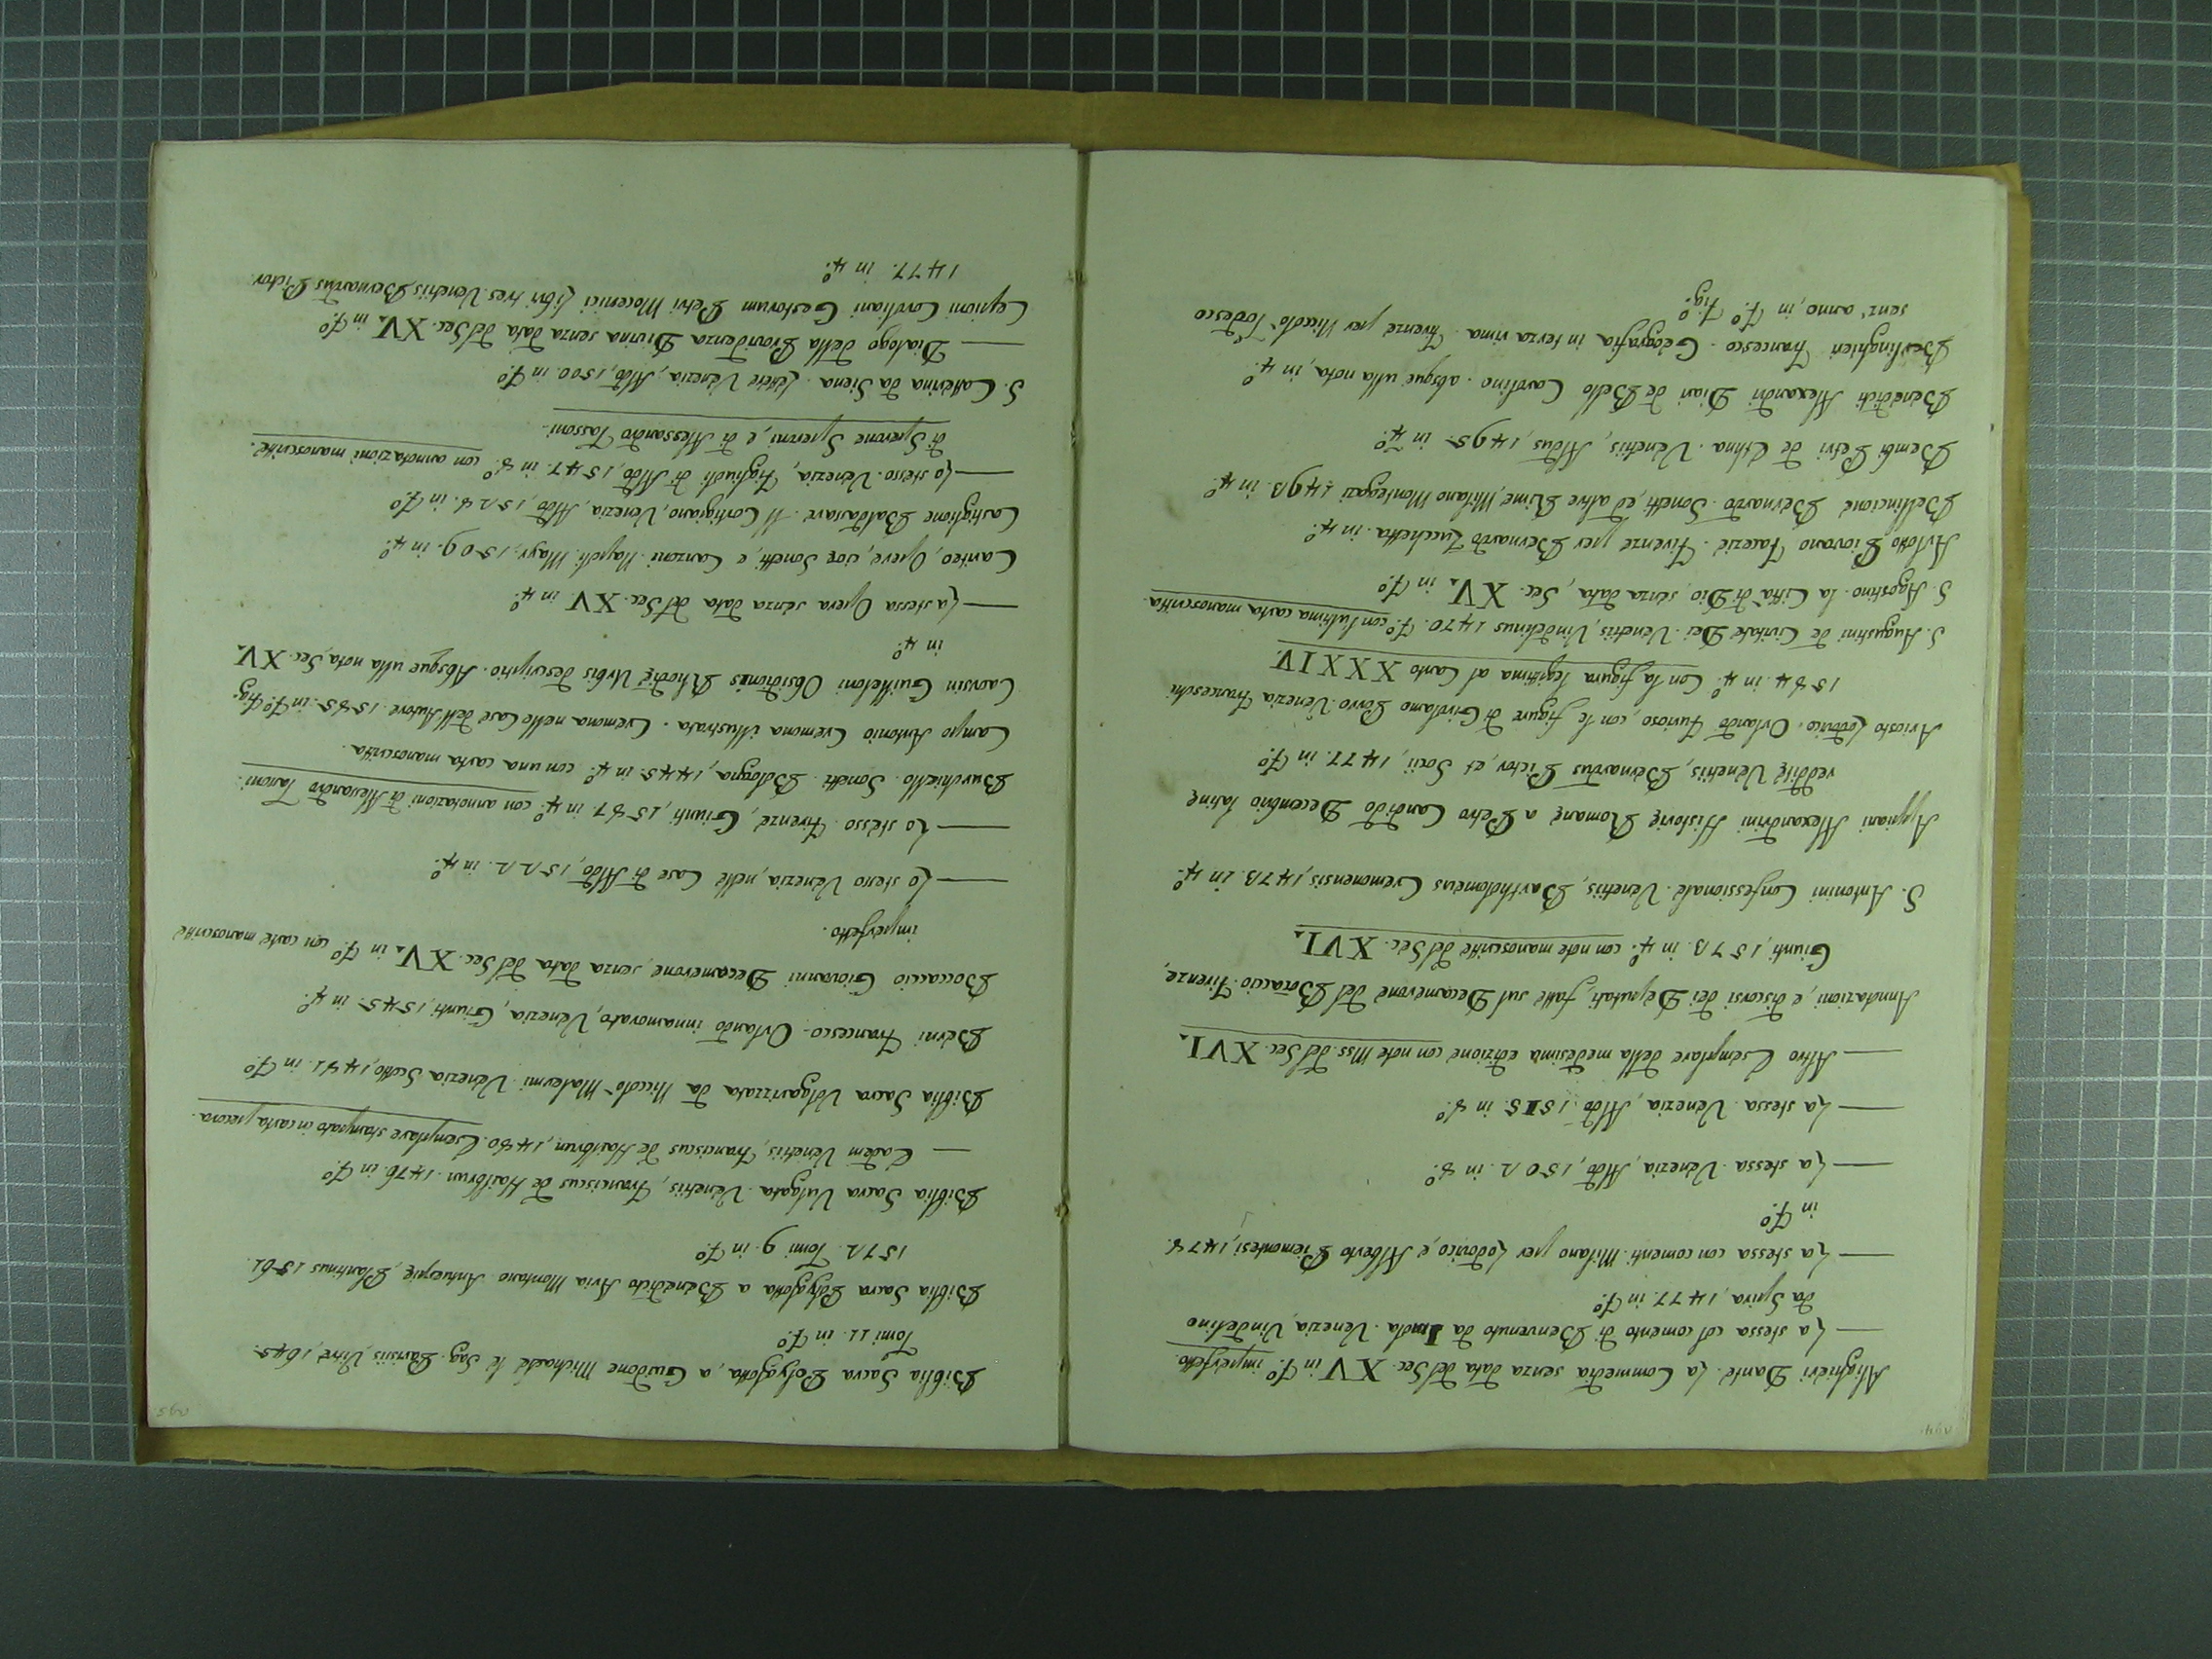 294
Alighieri Dante. La Commedia senza data del Sec. XV in F.º imperfetto.
—— La stessa col comento di Benvenuto da Imola. Venezia, Vindelino
da Spira, 1477. in F.º
—— La stessa con comenti. Milano per Lodovico, e Alberto Piemontesi, 1478.
in F.º
—— La stessa. Venezia, Aldo, 1502. in 8.º
—— La stessa. Venezia, Aldo. 1515. in 8.º
—— Altro Esemplare della medesima edizione con note Mss. del Sec. XVI.
Annotazioni, e discorsi dei Deputati fatte sul Decamerone del Bocaccio. Firenze,
Giunti, 1573. in 4.º con note manoscritte del Sec. XVI.
S. Antonini Confessionale. Venetiis, Bartholomeus Cremonensis, 1473. in 4.º
Appiani Alexandrini Historię Romanę a Petro Candido Decembrio latinę
redditę Venetiis, Bernardus Pictor, et Socii, 1477. in F.º
Ariosto Lodovico. Orlando Furioso, con le figure di Girolamo Porro. Venezia. Franceschi
1584. in 4.º Con la figura legittima al Canto XXXIV.
S. Augustini de Civitate Dei. Venetiis, Vindelinus 1470. F.º con l'ultima carta manoscritta.
S. Agostino. la Città di Dio, senza data, Sec. XV. in F.º
Arlotto, Piovano Facezie. Firenze per Bernardo Zucchetta. in 4.º
Bellincione Bernardo. Sonetti, ed altre Rime, Milano Montegazi 1493. in 4.º
Bembi Petri de Ethna. Venetiis, Aldus, 1495. in 4.º
Benedicti Alexandri Diari de Bello Carolino. absque ulla nota, in 4.º
Berlinghieri Francesco. Geografia in terza rima. Firenze per Niccolò Todesco
senz' anno, in F.º Fig.º
295
Biblia Sacra Polyglotta, a Guidone Michaele le Jay. Parisiis, Vitrè, 1645.
Tomi 11. in F.º
Biblia Sacra Polyglotta a Benedicto Aria Montano. Antuerpię, Plantinus 1561.
1572. Tomi 9. in F.º
Biblia Sacra Vulgata. Venetiis, Franciscus de Hailbrun. 1476. in F.º
— Eadem Venetiis, Franciscus de Hailbrun, 1480. Esemplare stampato in carta pecora.
Biblia Sacra Volgarizzata da Niccolò Malermi. Venezia Scotto, 1481. in F.º
Berni Francesco. Orlando innamorato, Venezia, Giunti, 1545. in 4.º
Boccaccio Giovanni Decamerone, senza data del Sec. XV. in F.º con carte manoscritte
imperfetto.
—— Lo stesso Venezia, nelle Case di Aldo, 1522. in 4.º
—— Lo stesso. Firenze, Giunti, 1587. in 4.º con annotazioni di Alessandro Tassoni.
Burchiello. Sonetti. Bologna, 1445. in 4.º con una carta manoscritta.
Campo Antonio Cremona illustrata. Cremona nelle Case dell'Autore. 1585. in F.º Fig:
Caorsin Guillelmi Obsidionis Rhodię Urbis descriptio. Absque ulla nota, Sec. XV.
in 4.º
—— La stessa Opera senza data del Sec. XV. in 4.º
Canteo, Opere, cioè Sonetti, e Canzoni. Napoli. Mayr, 1509. in 4.º
Castiglione Baldassare. Il Cortigiano, Venezia, Aldo, 1528. in F.º
—— Lo stesso. Venezia, Figliuoli di Aldo, 1547. in 8.º con annotazioni manoscritte.
di Sperone Speroni, e di Alessandro Tassoni.
S. Catterina da Siena. Lettere Venezia, Aldo, 1500. in F.º
—— Dialogo della Providenza Divina senza data del Sec. XV. in F.º
Cepioni Coroliani Gestorum Petri Mocenici Libri tres. Venetiis Bernardus Pictor.
1477. in 4.º